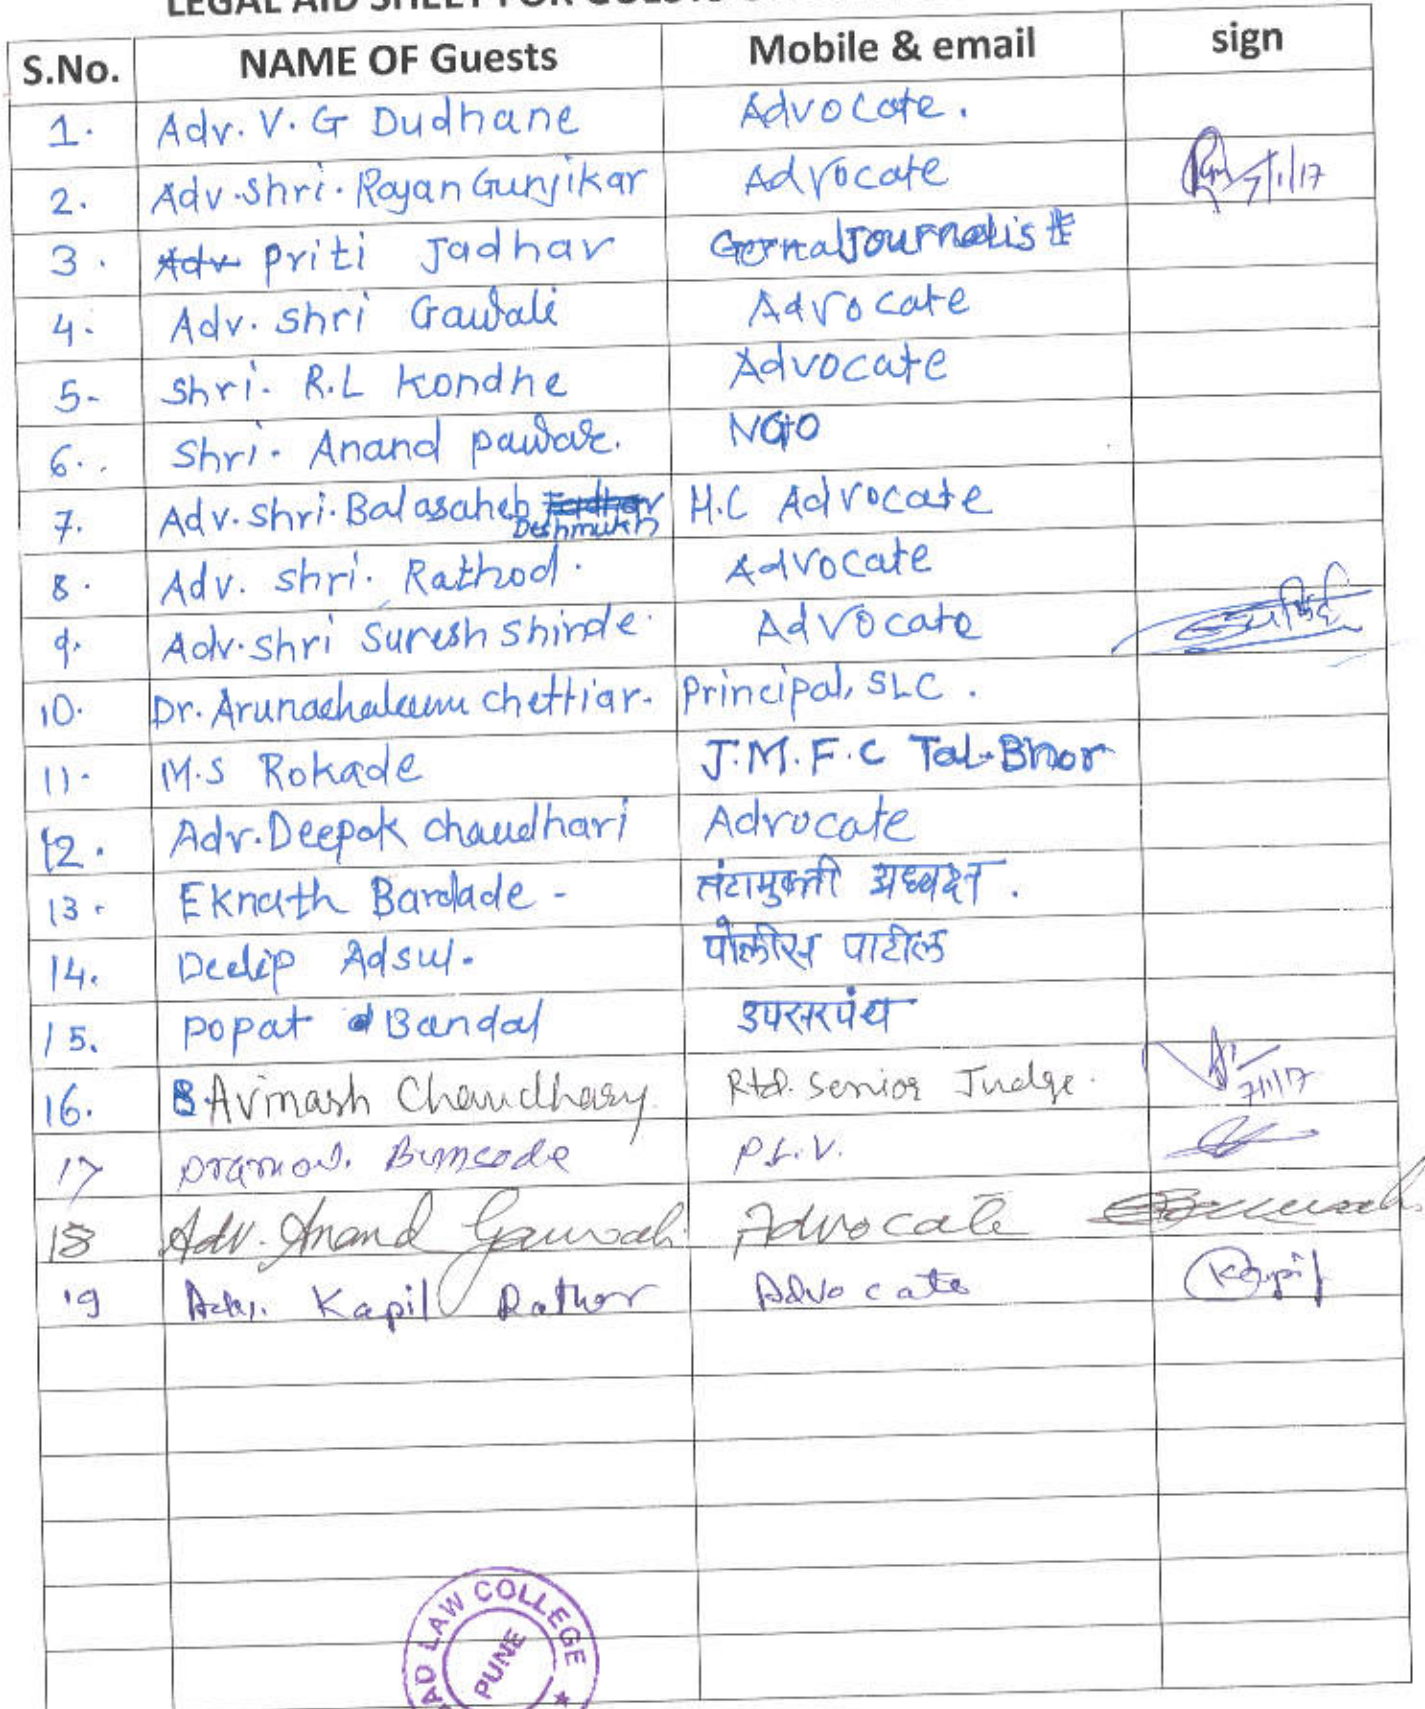 LEGAL AID SHEET FOR GUESTS
S.No. NAME OF Guests Mobile & email sign
1. Adv. V. G Dudhane Advocate.
2. Adv. Shri. Rajan Gunjikar Advocate 7/1/17
3. Adv Priti Jadhav Journalist
4. Adv. Shri Gawali Advocate
5- Shri. R.L Kondhe Advocate
6.. Shri. Anand Pawar. NGO
7. Adv. Shri. Balasaheb Jadhav Deshmukh H.C Advocate
8. Adv. Shri. Rathod. Advocate
9. Adv. Shri Suresh Shinde. Advocate
10. Dr. Arunachalam Chettiar. Principal, SLC.
11- M.S Rokade J.M.F.C Tal-Bhor
12. Adv. Deepak Chaudhari Advocate
13. Eknath Bardade - तंटामुक्ती अध्यक्ष.
14. Dilip Adsul. पोलीस पाटील
15. Popat Bandal उपसरपंच
16. Avinash Chaudhary Rtd. Senior Judge. 7/1/17
17 Pramod. P.L.V.
18 Adv. Anand Gawali Advocate
19 Adv. Kapil Rathor Advocate Kapil
LAW COLLEGE
PUNE